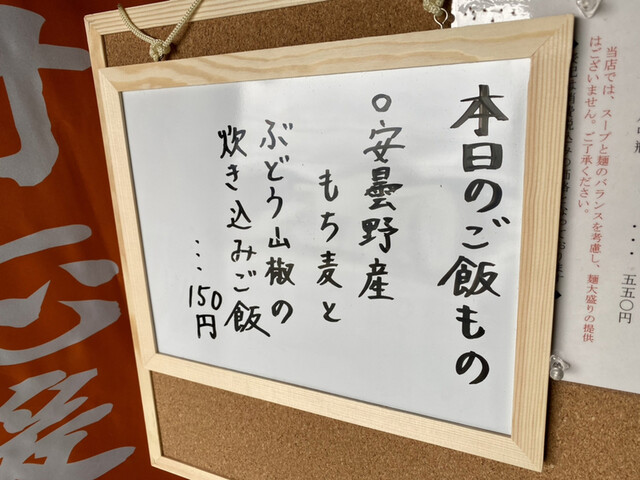 本日のご飯もの
○安曇野産
もち麦と
ぶどう山椒の
炊き込みご飯
…150円
…五五〇円
当店では、スープと麺のバランスを考慮し、麺大盛りの提供
はございません。ご了承ください。